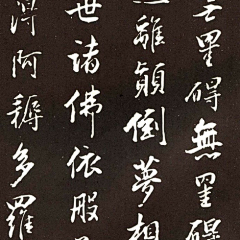 罣碍無罣碍
離顛倒夢想
世諸佛依般
得阿耨多羅